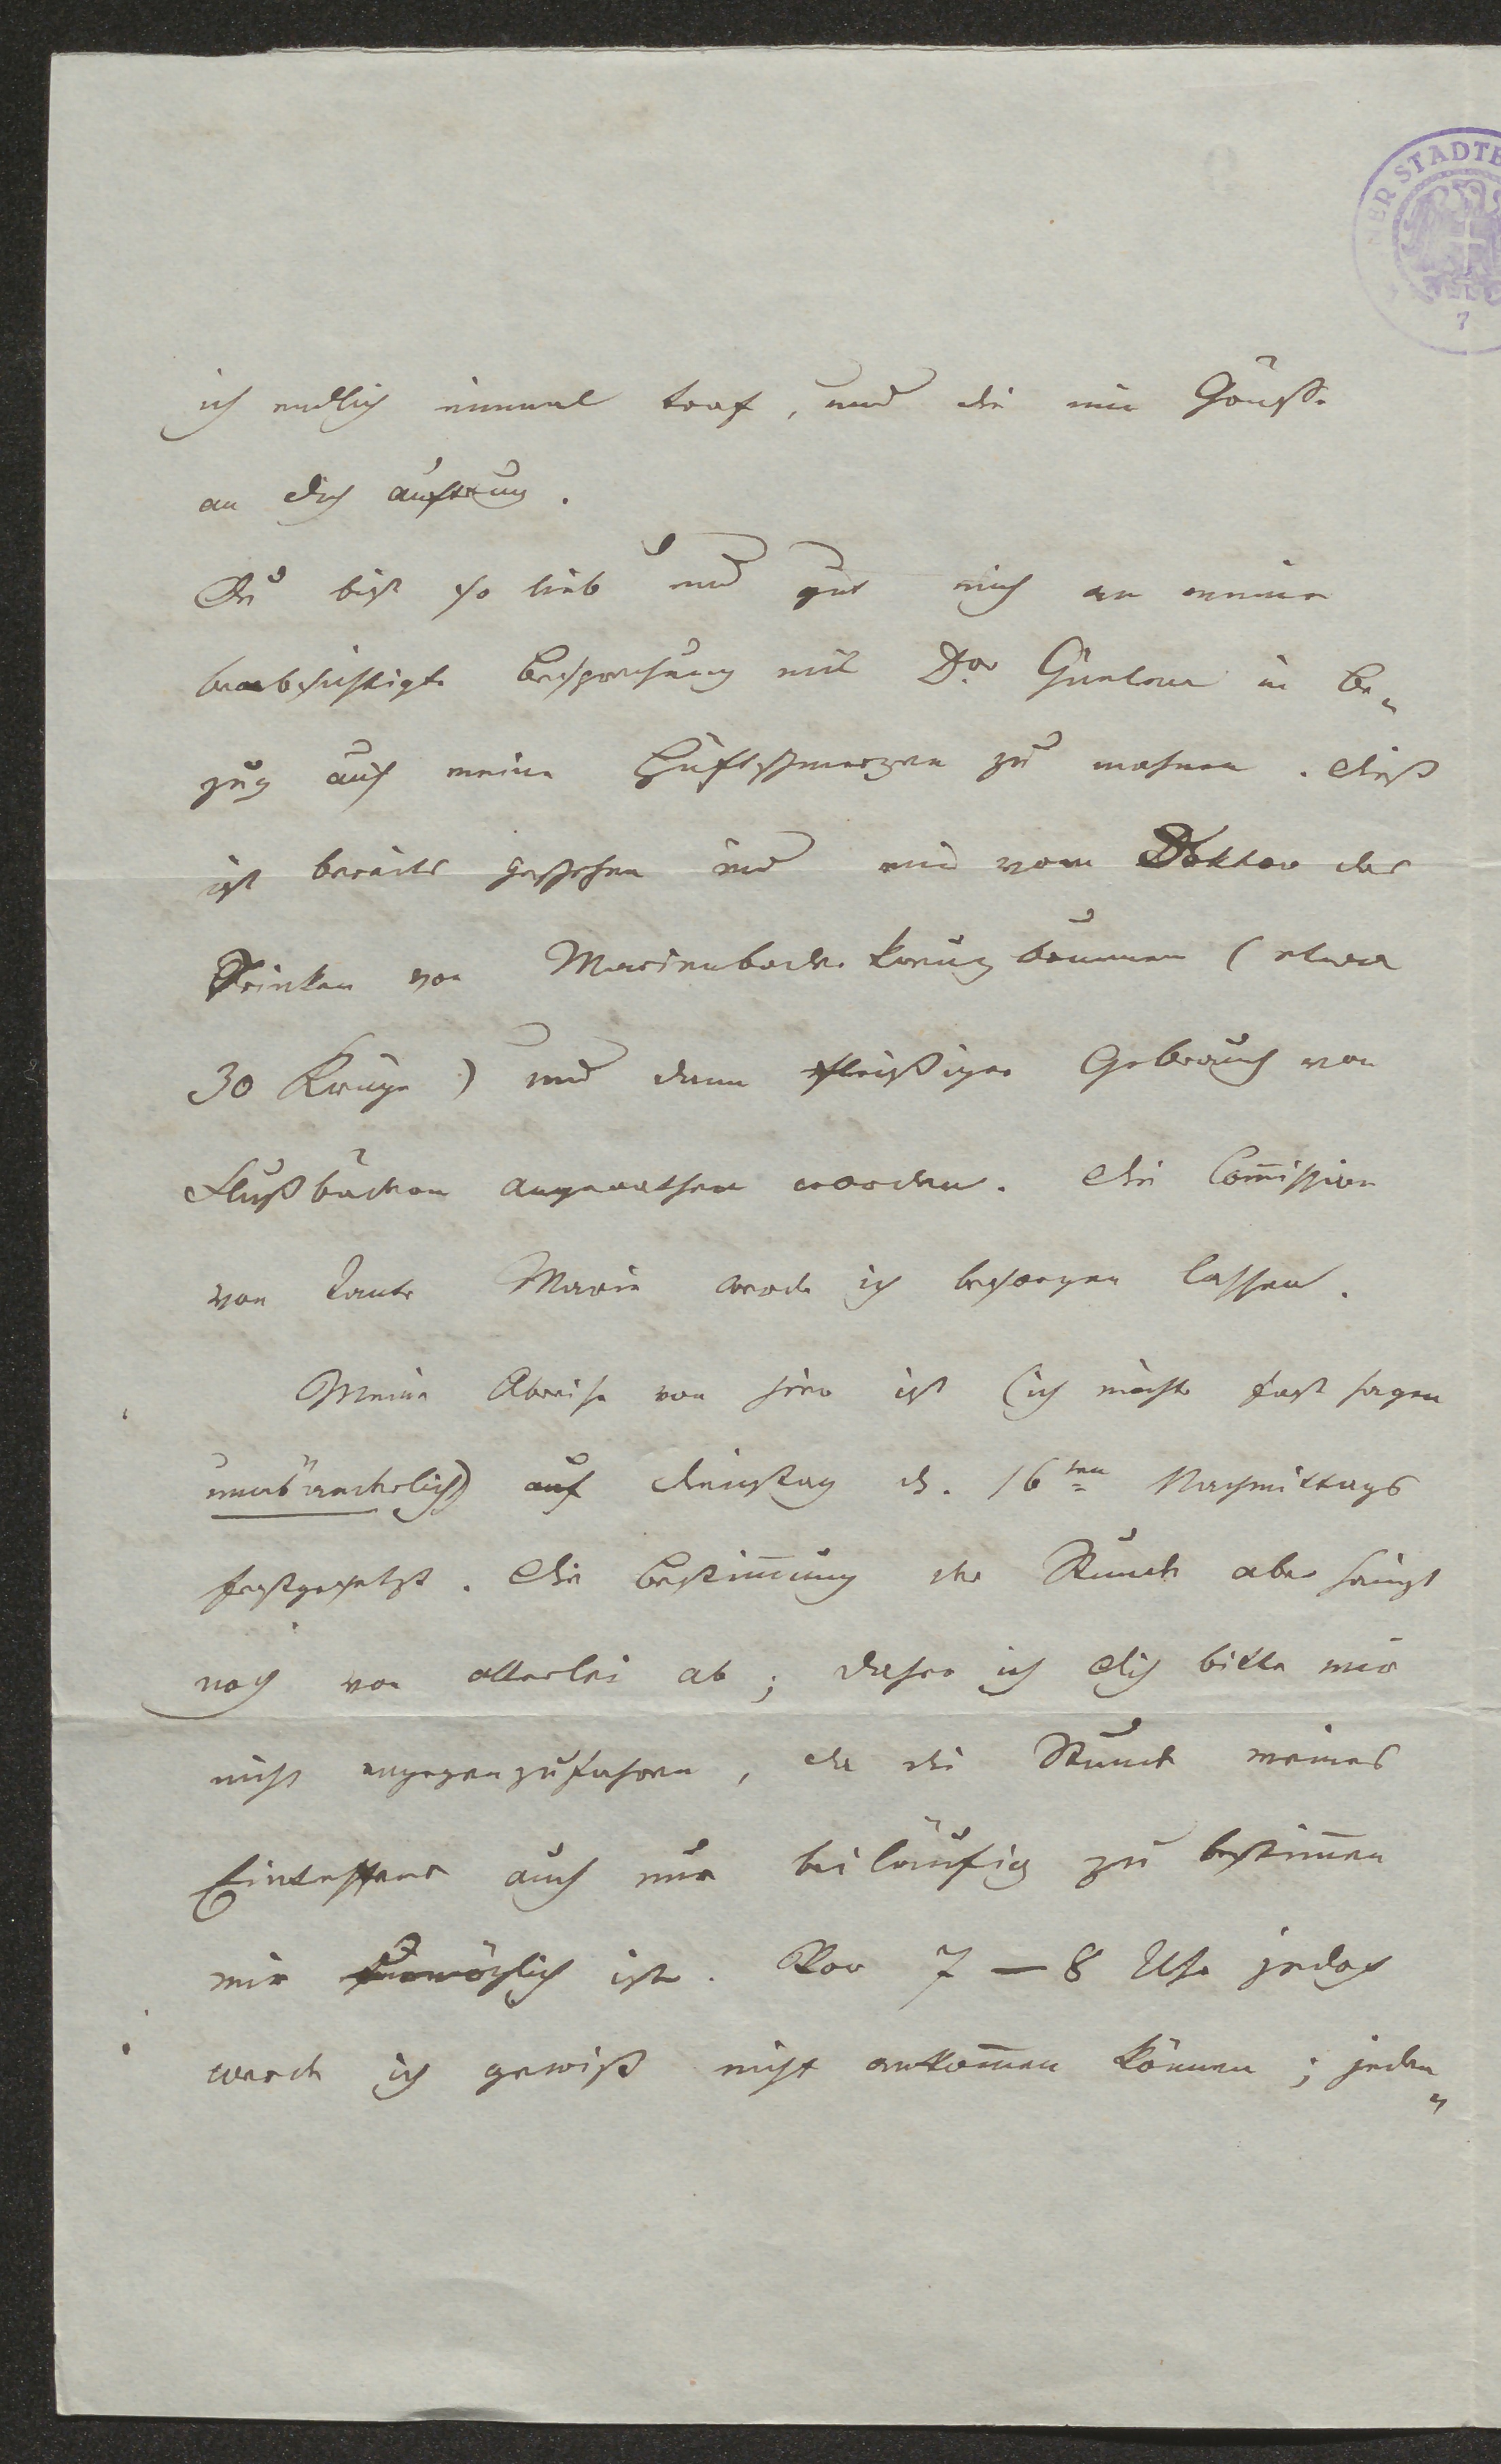 ich endlich einmal traf, und die mir Grüße
an dich auftrug.
Du bist so lieb und gut mich an meine
beabsichtigte Besprechung mit Dor Güntner in Be„
zug auf meine Hüftschmerzen zu mahnen. Dieß
ist bereits geschehen und mir vom Doktor das
Trinken von Marienbader Kreuzbrunnen (etwa
30 Krüge) und dann fleißiger Gebrauch von
Flußbädern angerathen worden. Die Com̄ission
von Tante Marie werde ich besorgen lassen.
Meine Abreise von hier ist (ich möchte fast sagen
unabänderlich) auf Dienstag d. 16ten Nachmittags
festgesetzt. Die Bestim̄ung der Stunde aber hängt
noch von allerlei ab; daher ich dich bitte mir
nicht entgegenzufahren, da die Stunde meines
Eintreffens auch nur beiläufig zu bestim̄en
mir unmöglich ist. Vor 7 – 8 Uhr jedoch
werde ich gewiß nicht ankom̄en können; jeden„
ER STADTB
7